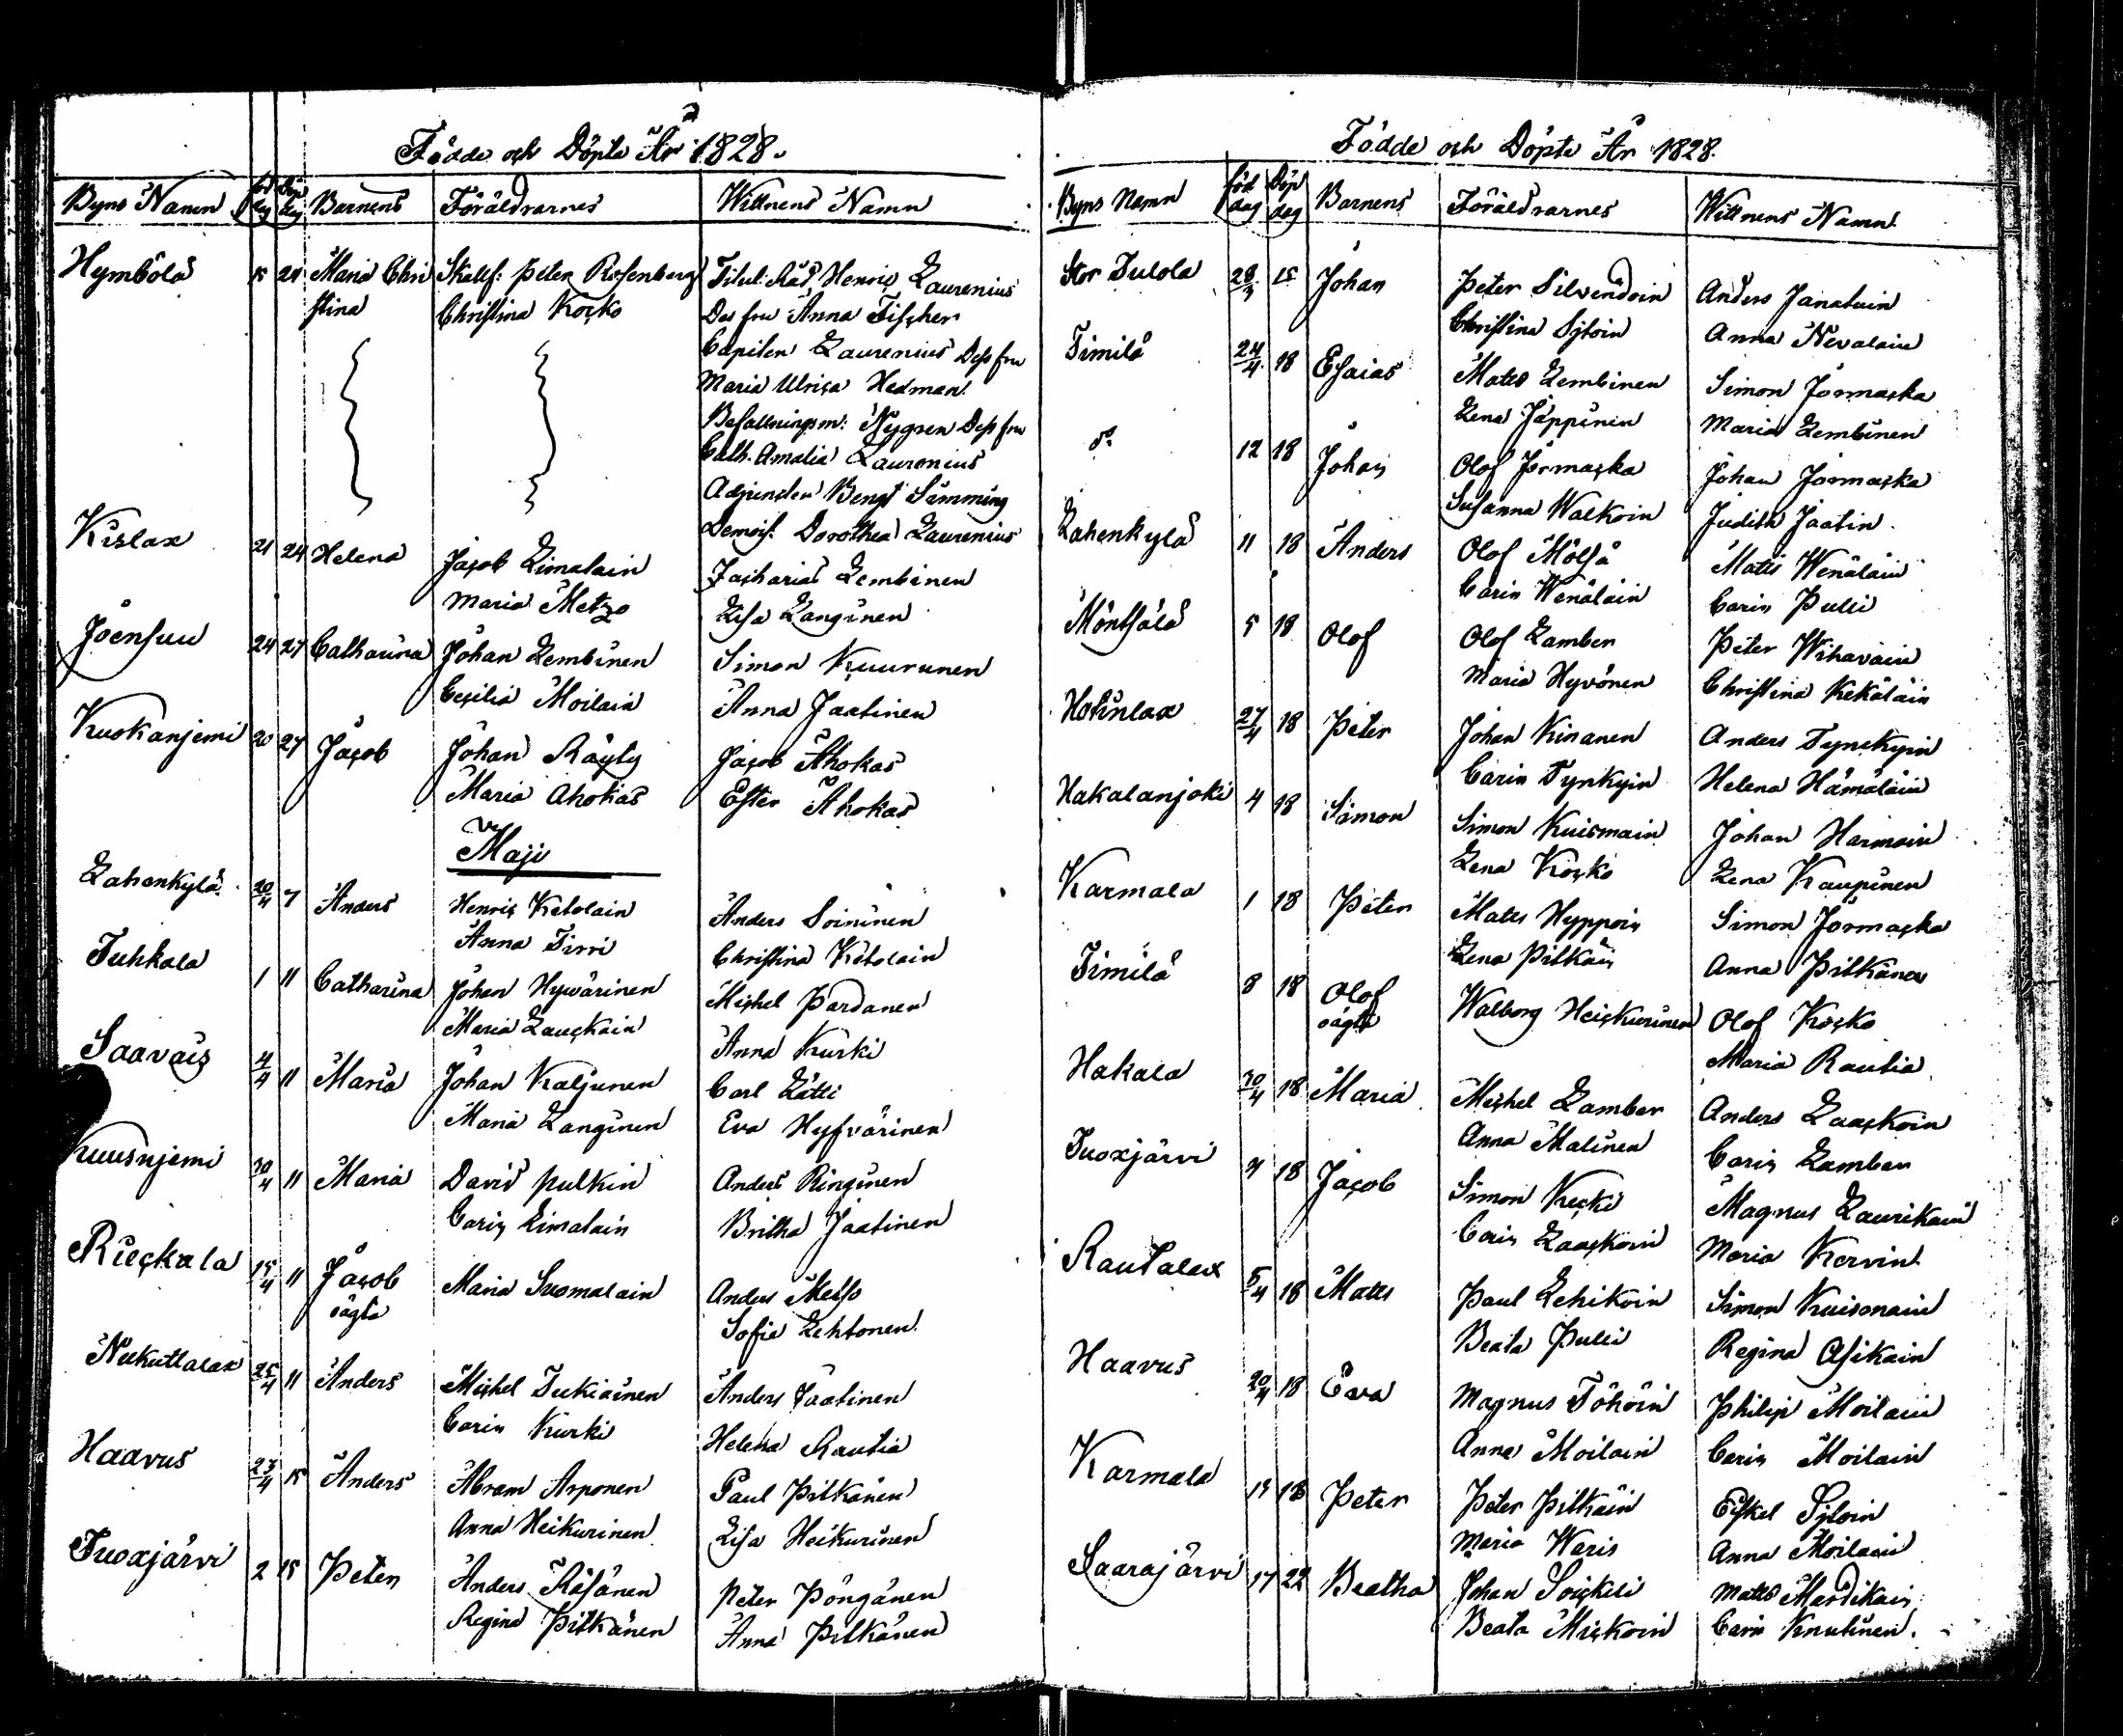 Födde och Döpte År 1828.
Byns Namn föd dag Döp dag Barnens Föräldrarnes Wittnens Namn
Hymbölä 15 24 Maria Chri Skallf: Peter Rosenberg Titul: Råd Henric Laurenius
stina Christina Kocko Des fru Anna Fischer
Capiten Laurenius Dess fru
Maria Ulrica Hedman
Befallningsm: Nygren Dess fru
Cath. Amalia Laurenius
Adjuncten Bengt Simming
Demois: Dorothea Laurenius
Kislax 21 24 Helena Jacob Limalain Zacharias Lembinen
Maria Metzo Lisa Langinen
Joensuu 24 27 Catharina Johan Lembinen Simon Kuurunen
Cecilia Moilain Anna Jaatinen
Kuokanjemi 20 27 Jacob Johan Räyly Jacob Ahokas
Maria Ahokas Ester Ahokas
Maji
Lahenkylä 20/4 7 Anders Henric Ketolain Anders Soininen
Anna Tirri Christina Ketolain
Tuhkala 1 11 Catharina Johan Hywärinen Michel Pardanen
Maria Lauckain Anna Kurki
Saavais 4/4 11 Maria Johan Kaljunen Carl Lätti
Maria Langinen Eva Hyfvärinen
Kuusnjemi 30/4 11 Maria David Pulkin Anders Ringinen
Carin Limalain Britha Jaatinen
Rieckala 15/4 11 Jacob Maria Suomalain Anders Metso
oägta Sofia Lehtonen
Niukuttalax 25/4 11 Anders Michel Tukiainen Anders Jaatinen
Carin Kurki Helena Rautia
Haavus 23/4 15 Anders Abram Arponen Paul Pitkänen
Anna Heikurinen Lisa Heikurinen
Tuoxjärvi 2 15 Peter Anders Räsänen Peter Pöngänen
Regina Pitkänen Anna Pitkänen
Födde och Döpte År 1828.
Byns Namn föd dag Döp dag Barnens Föräldrarnes Wittnens Namn
Stor Tulola 28/3 15 Johan Peter Silvendoin Anders Janatuin
Christina Sjtoin Anna Nevalain
Timilä 24/4 18 Esaias Matts Lembinen Simon Jormacka
Lena Jäppinin Maria Lembinen
do 12 18 Johan Olof Jormacka Johan Jormacka
Susanna Walkoin Judith Jaatin
Lahenkylä 11 18 Anders Olof Mölsä Matts Wenäläin
Carin Wenäläin Carin Pulli
Möntsälä 5 18 Olof Olof Lamber Peter Wihavain
Maria Hyvönen Christina Kekäläin
Hotinlax 27/4 18 Peter Johan Kinanen Anders Tynckyin
Carin Tynkyin Helena Hämäläin
Hakalanjoki 4 18 Simon Simon Kuismain Johan Harmoin
Lena Kocko Lena Kaupinen
Karmala 1 18 Peter Matts Hyppoin Simon Jormacka
Lena Pitkäin Anna Pitkänen
Timilä 8 18 Olof Walborg Heickurinen Olof Kocko
oägta Maria Rautia
Hakala 30/4 18 Maria Michel Lamber Anders Laackoin
Anna Malinen Carin Lamber
Tuoxjärvi 4 18 Jacob Simon Kecki Magnus Laurikain
Carin Laackoin Maria Kervin
Rautalax 5/4 18 Matts Paul Lehikoin Simon Kuismain
Beata Pulli Regina Asikain
Haavus 20/4 18 Eva Magnus Töhöin Philip Moilain
Anna Moilain Carin Moilain
Karmala 14 18 Peter Peter Pitkäin Eskel Sjtoin
Maria Waris Anna Moilain
Saarajärvi 17 22 Beatha Johan Soickeli Matts Mardikain
Beata Mickoin Carin Knutinen.